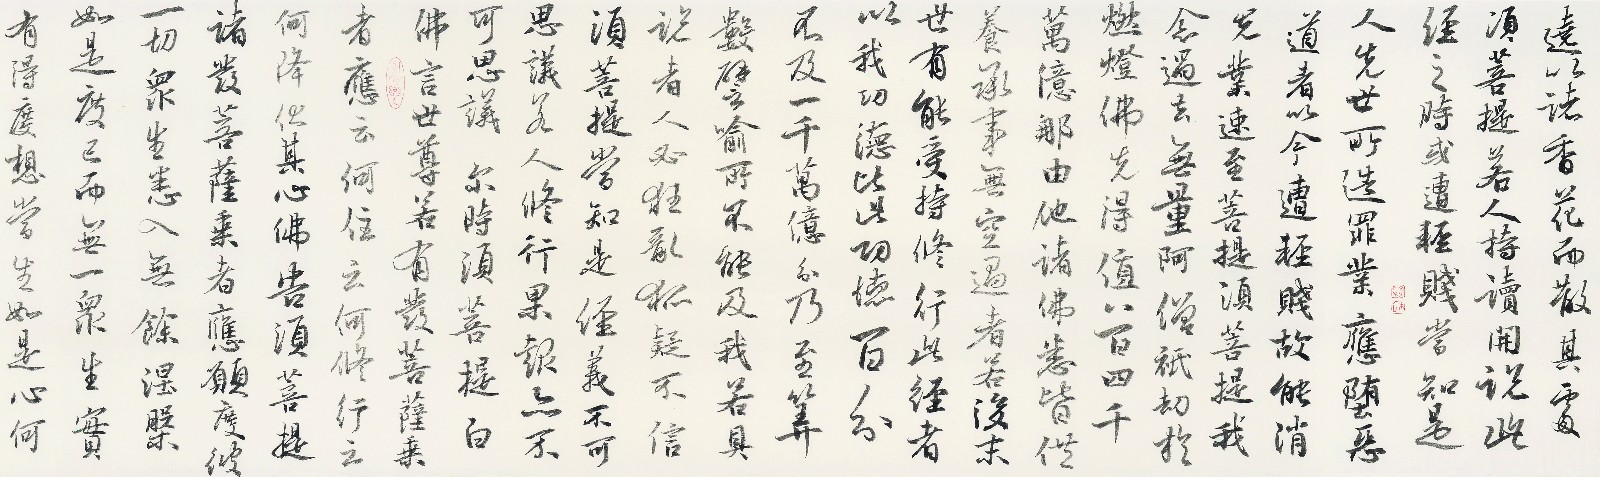 遶以諸香花而散其處
須菩提若人持讀開說此
經之時或遭輕賤當知是
人先世所造罪業應墮惡
道者以今遭輕賤故能消
先業速至菩提須菩提我
念過去無量阿僧祇劫於
燃燈佛先得值八百四千
萬億那由他諸佛悉皆供
養承事無空過者若復末
世有能受持修行此經者
以我功德比此功德百分
不及一千萬億分乃至筭
數譬喻所不能及我若具
說者人必狂亂狐疑不信
須菩提當知是經義不可
思議若人修行果報亦不
可思議 尔時須菩提白
佛言世尊若有發菩薩乘
者應云何住云何修行云
何降伏其心佛告須菩提
諸發菩薩乘者應願度彼
一切眾生悉入無餘涅槃
如是度已而無一眾生實
有得度想當生如是心何